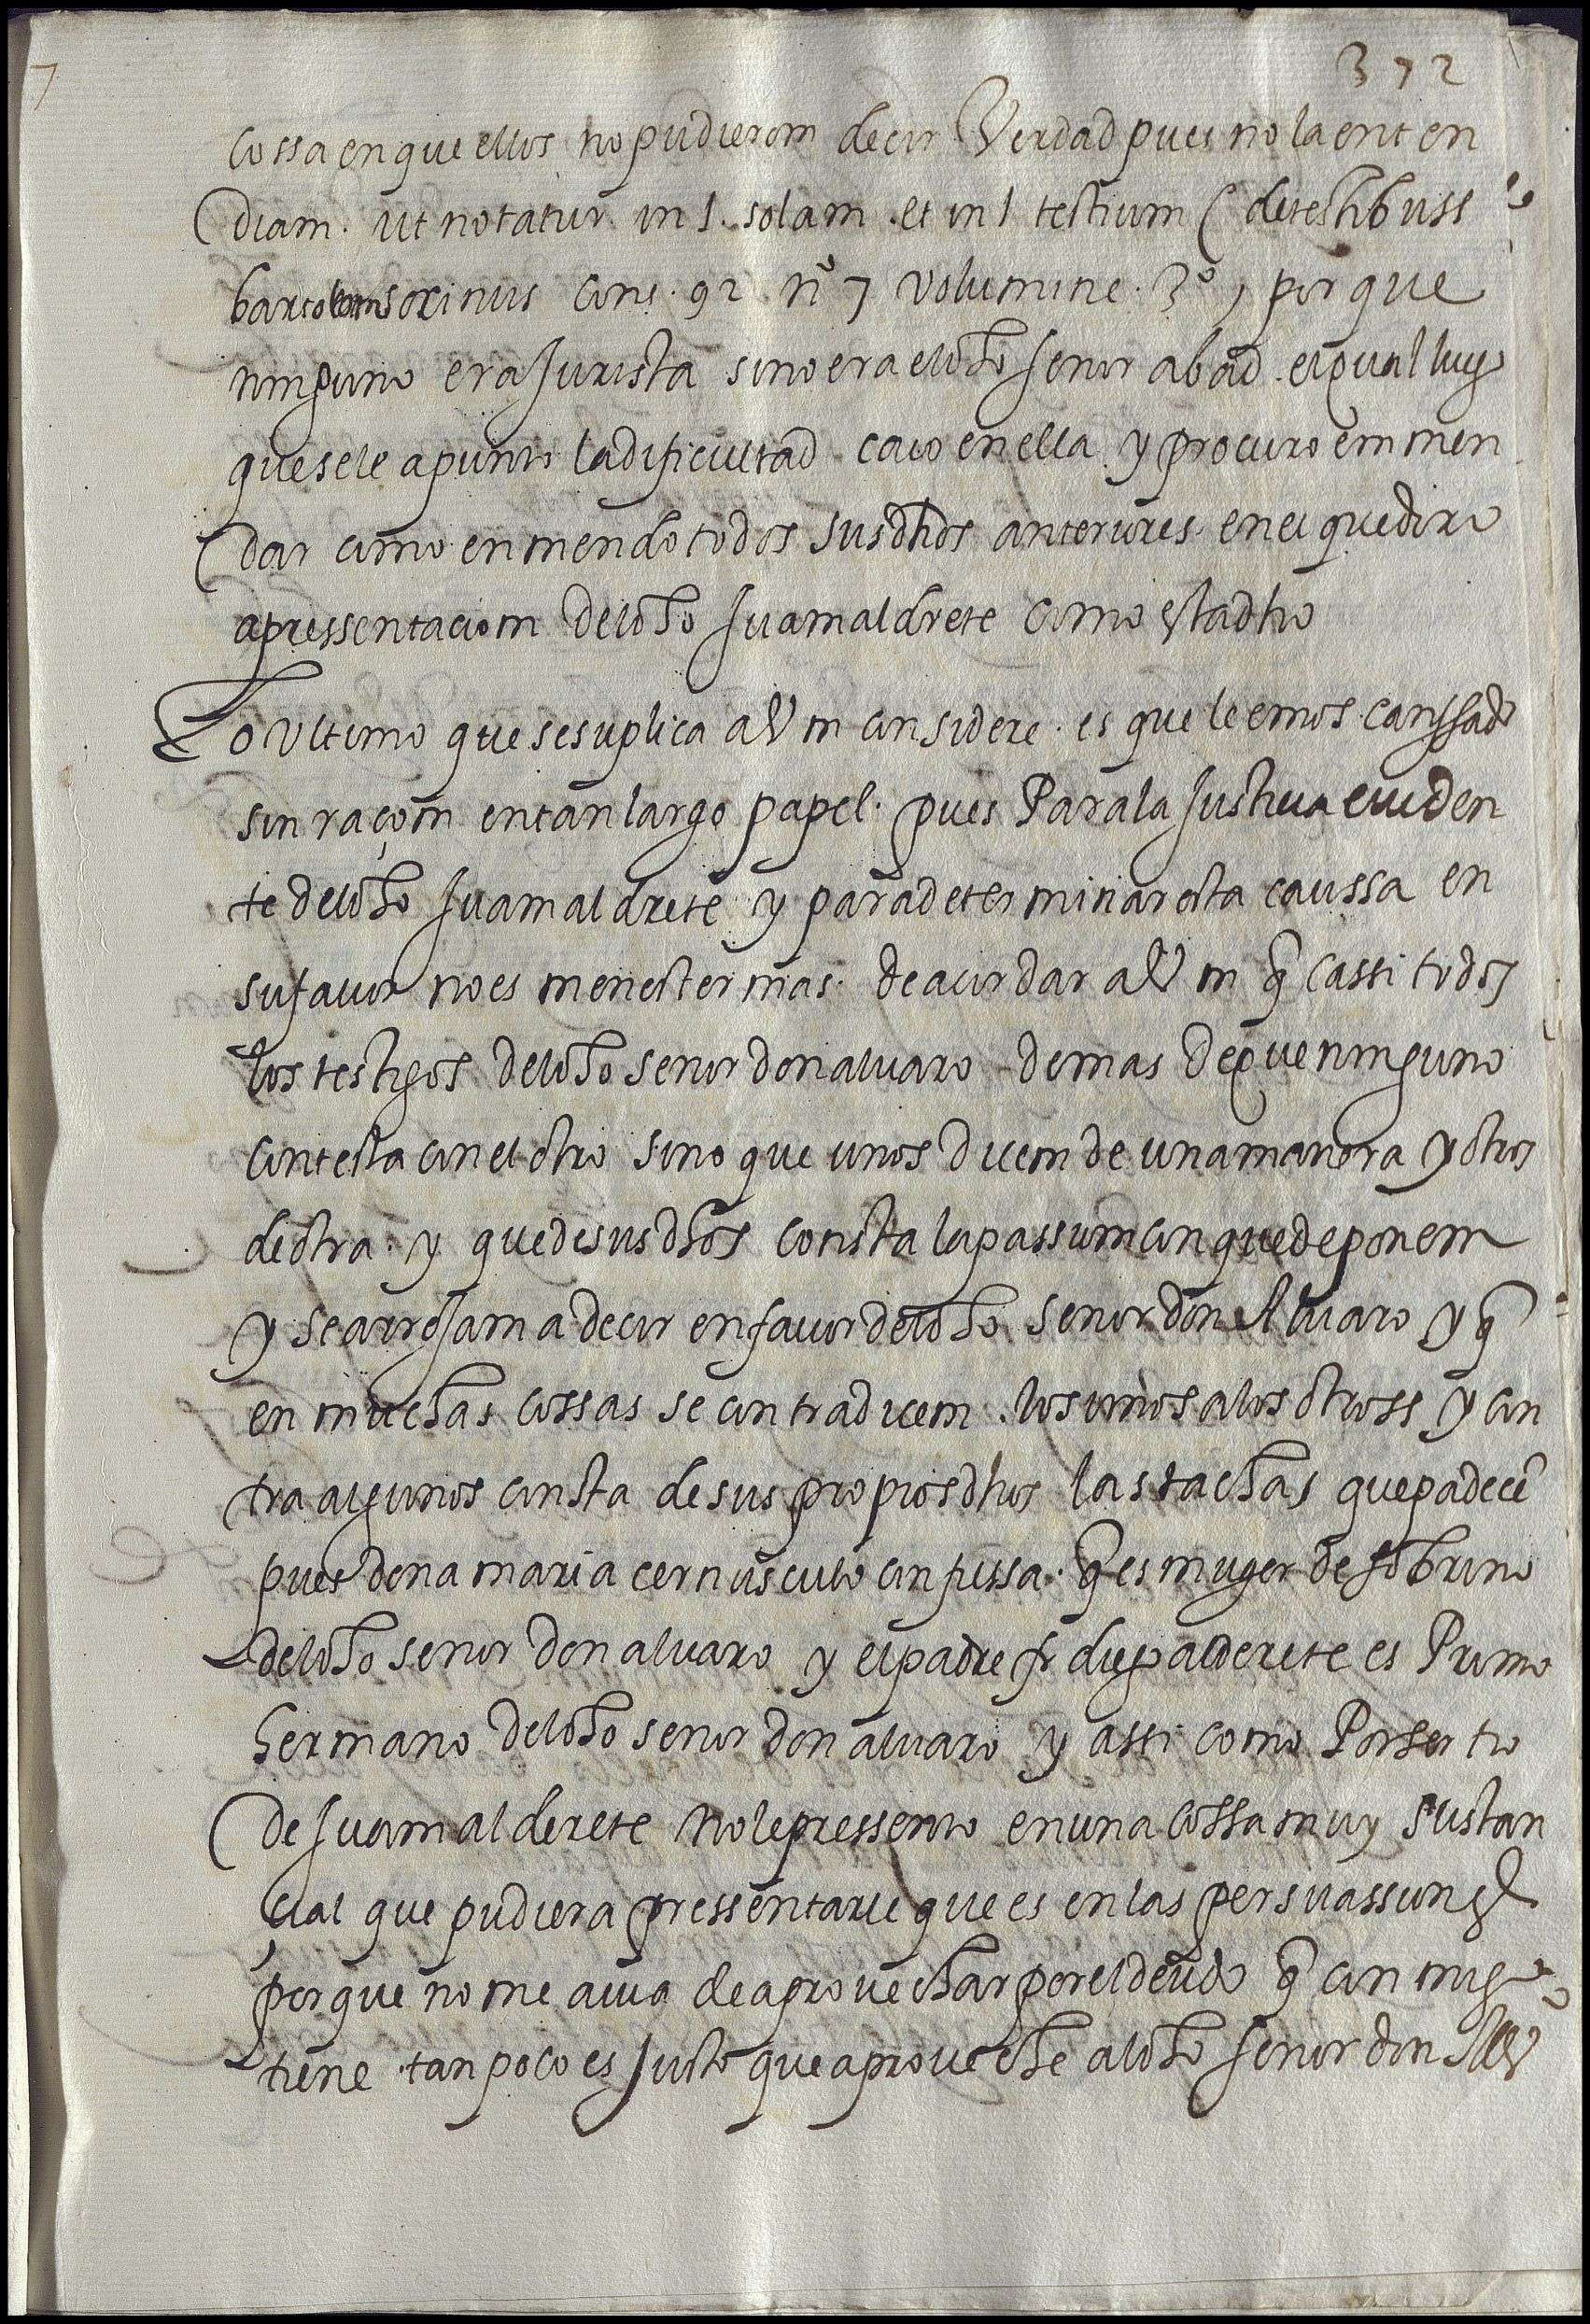 372
cossa en que ellos no pudierom decir Verdad pues no la enten
diam. ut notatur in l. solam. et in l testium C de testibuss
socinus cons. 92 nº 7 volumine. 3º, porque
ninguno era Jurista sino era el dho señor abad. el qual luego
que se le apunto la dificultad. caio en ella y procuro emmen
dar como enmendo todos sus dhos anteriores. en el que dixo
a pressentaciom del dho Juam aldrete como esta dho
Lo Ultimo que se suplica a V m considere. es que le emos canssado
sin raçom en tan largo papel. pues Para la Justicia euiden
te del dho Juam aldrete y para determinar esta caussa en
su fauor no es menester mas. de acordar a V m q̃ cassi todos
los testigos del dho señor don aluaro demas de que ninguno
contesta con el otro sino que unos dicem de una manera y otros
de otra. y que de sus dhos consta la passiom con que deponem
y se arrojam a decir en fauor del dho señor don Aluaro y q̃
en muchas cossas se contradicem. los unos a los otross y con
tra algunos consta de sus propios dhos las tachas que padecẽ
pues doña maria cernusculo confiessa. q̃ es muger de sobrino
del dho señor don aluaro y el padre fr diego alderete es Primo
hermano del dho señor don aluaro y assi como Por ser tio
de Juam alderete no le pressento en una cossa muy sustan
çial que pudiera pressentarle que es en las persuassiones
porque no me auia de aprouechar por el deudo q̃ conmigo
tiene. tanpoco es Justo que aproueche al dho señor don Alv